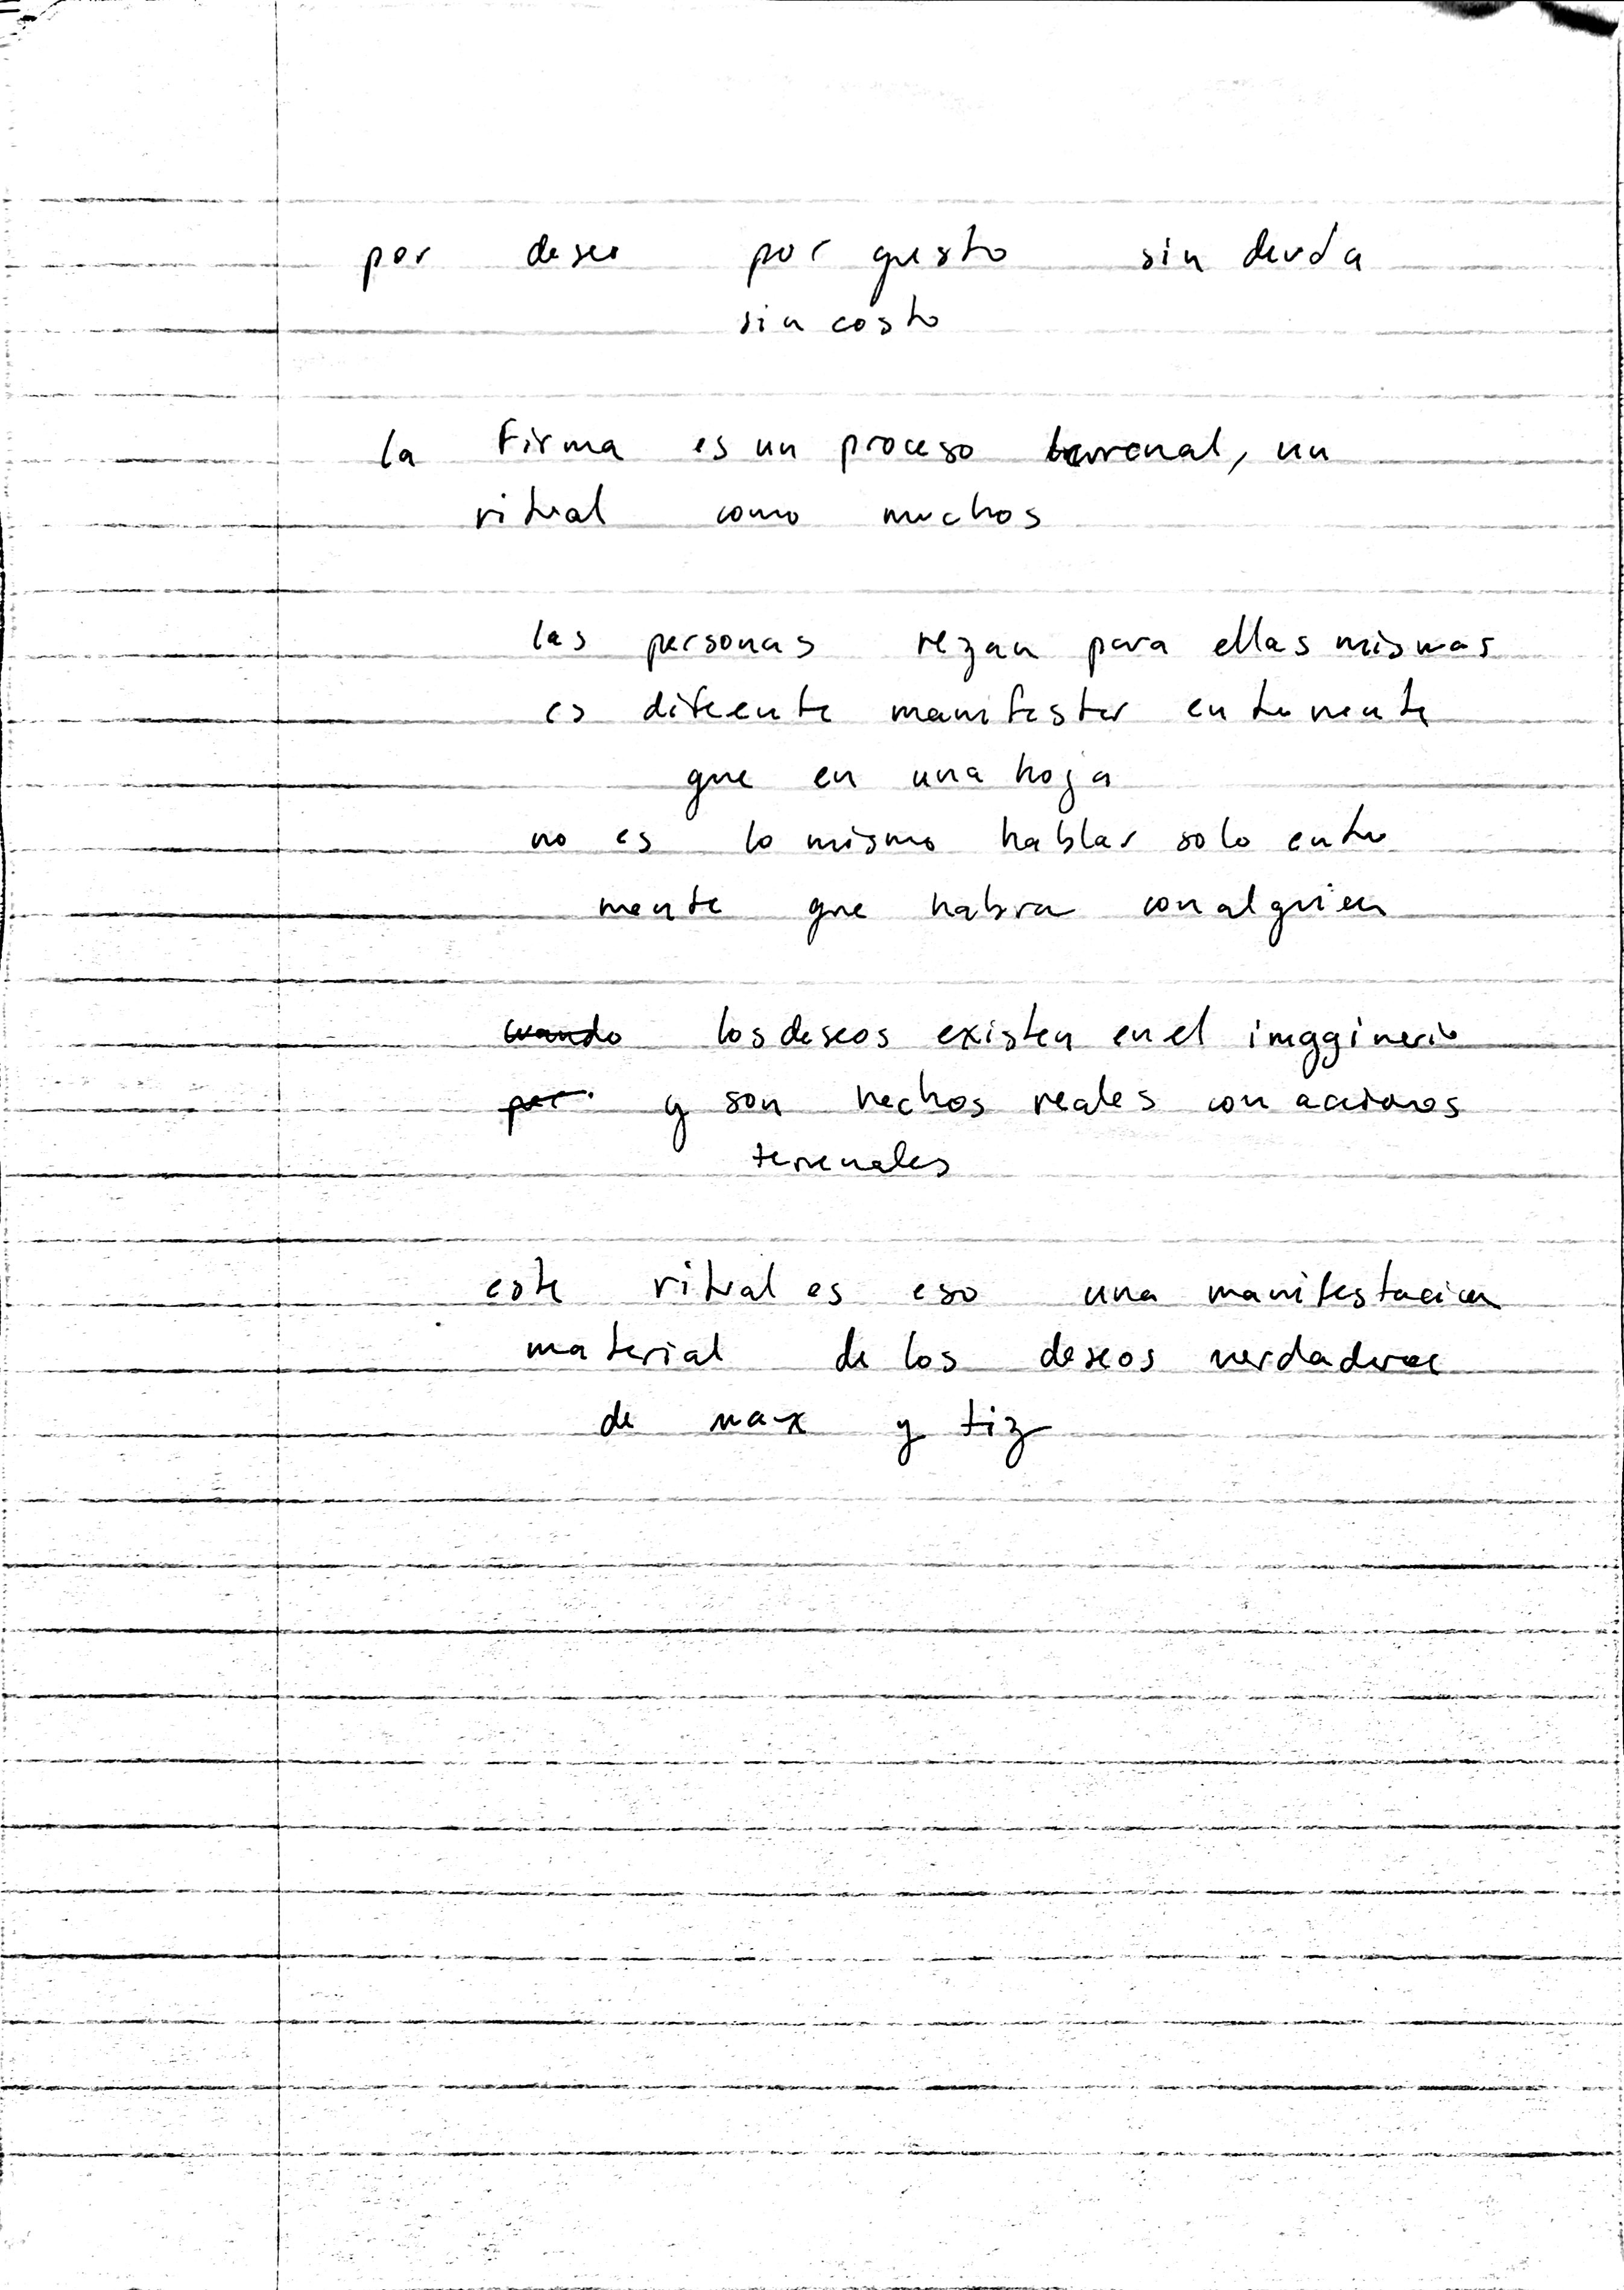 por deseo por gusto sin deuda
sin costo
la firma es un proceso terrenal, un
ritual como muchos
las personas rezan para ellas mismas
es difeente manifestar en tu mente
que en una hoja
no es lo mismo hablar solo en tu
mente que con alguien
cuando los deseos existen en el imagginerio
por y son hechos reales con acciones
terrenales
este ritual es eso una manifestacion
material de los deseos verdaderos
de max y tiz